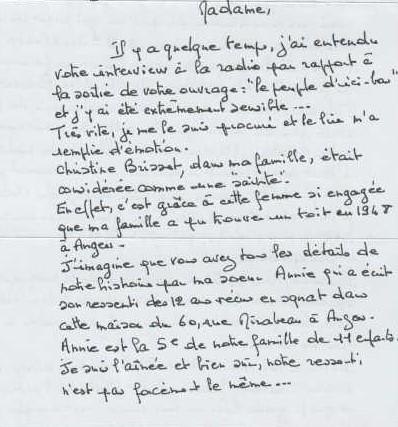 Madame,
Il y a quelque temps, j'ai entendu
votre interview à la radio par rapport à
la sortie de votre ouvrage : "le peuple d'ici-bas"
et j'y ai été extrêmement sensible...
Très vite, je me le suis procuré et le lire m'a
remplie d'émotion.
Christine Brisset, dans ma famille, était
considérée comme une "sainte".
En effet, c'est grâce à cette femme si engagée
que ma famille a pu trouver un toit en 1948
à Angers.
J'imagine que vous avez tous les détails de
notre histoire par ma soeur Annie qui a écrit
son ressenti des 12 ans vécus en squat dans
cette maison du 60, rue Mirabeau à Angers.
Annie est la 5e de notre famille de 11 enfants.
Je suis l'aînée et bien sûr, notre ressenti
n'est pas forcément le même...